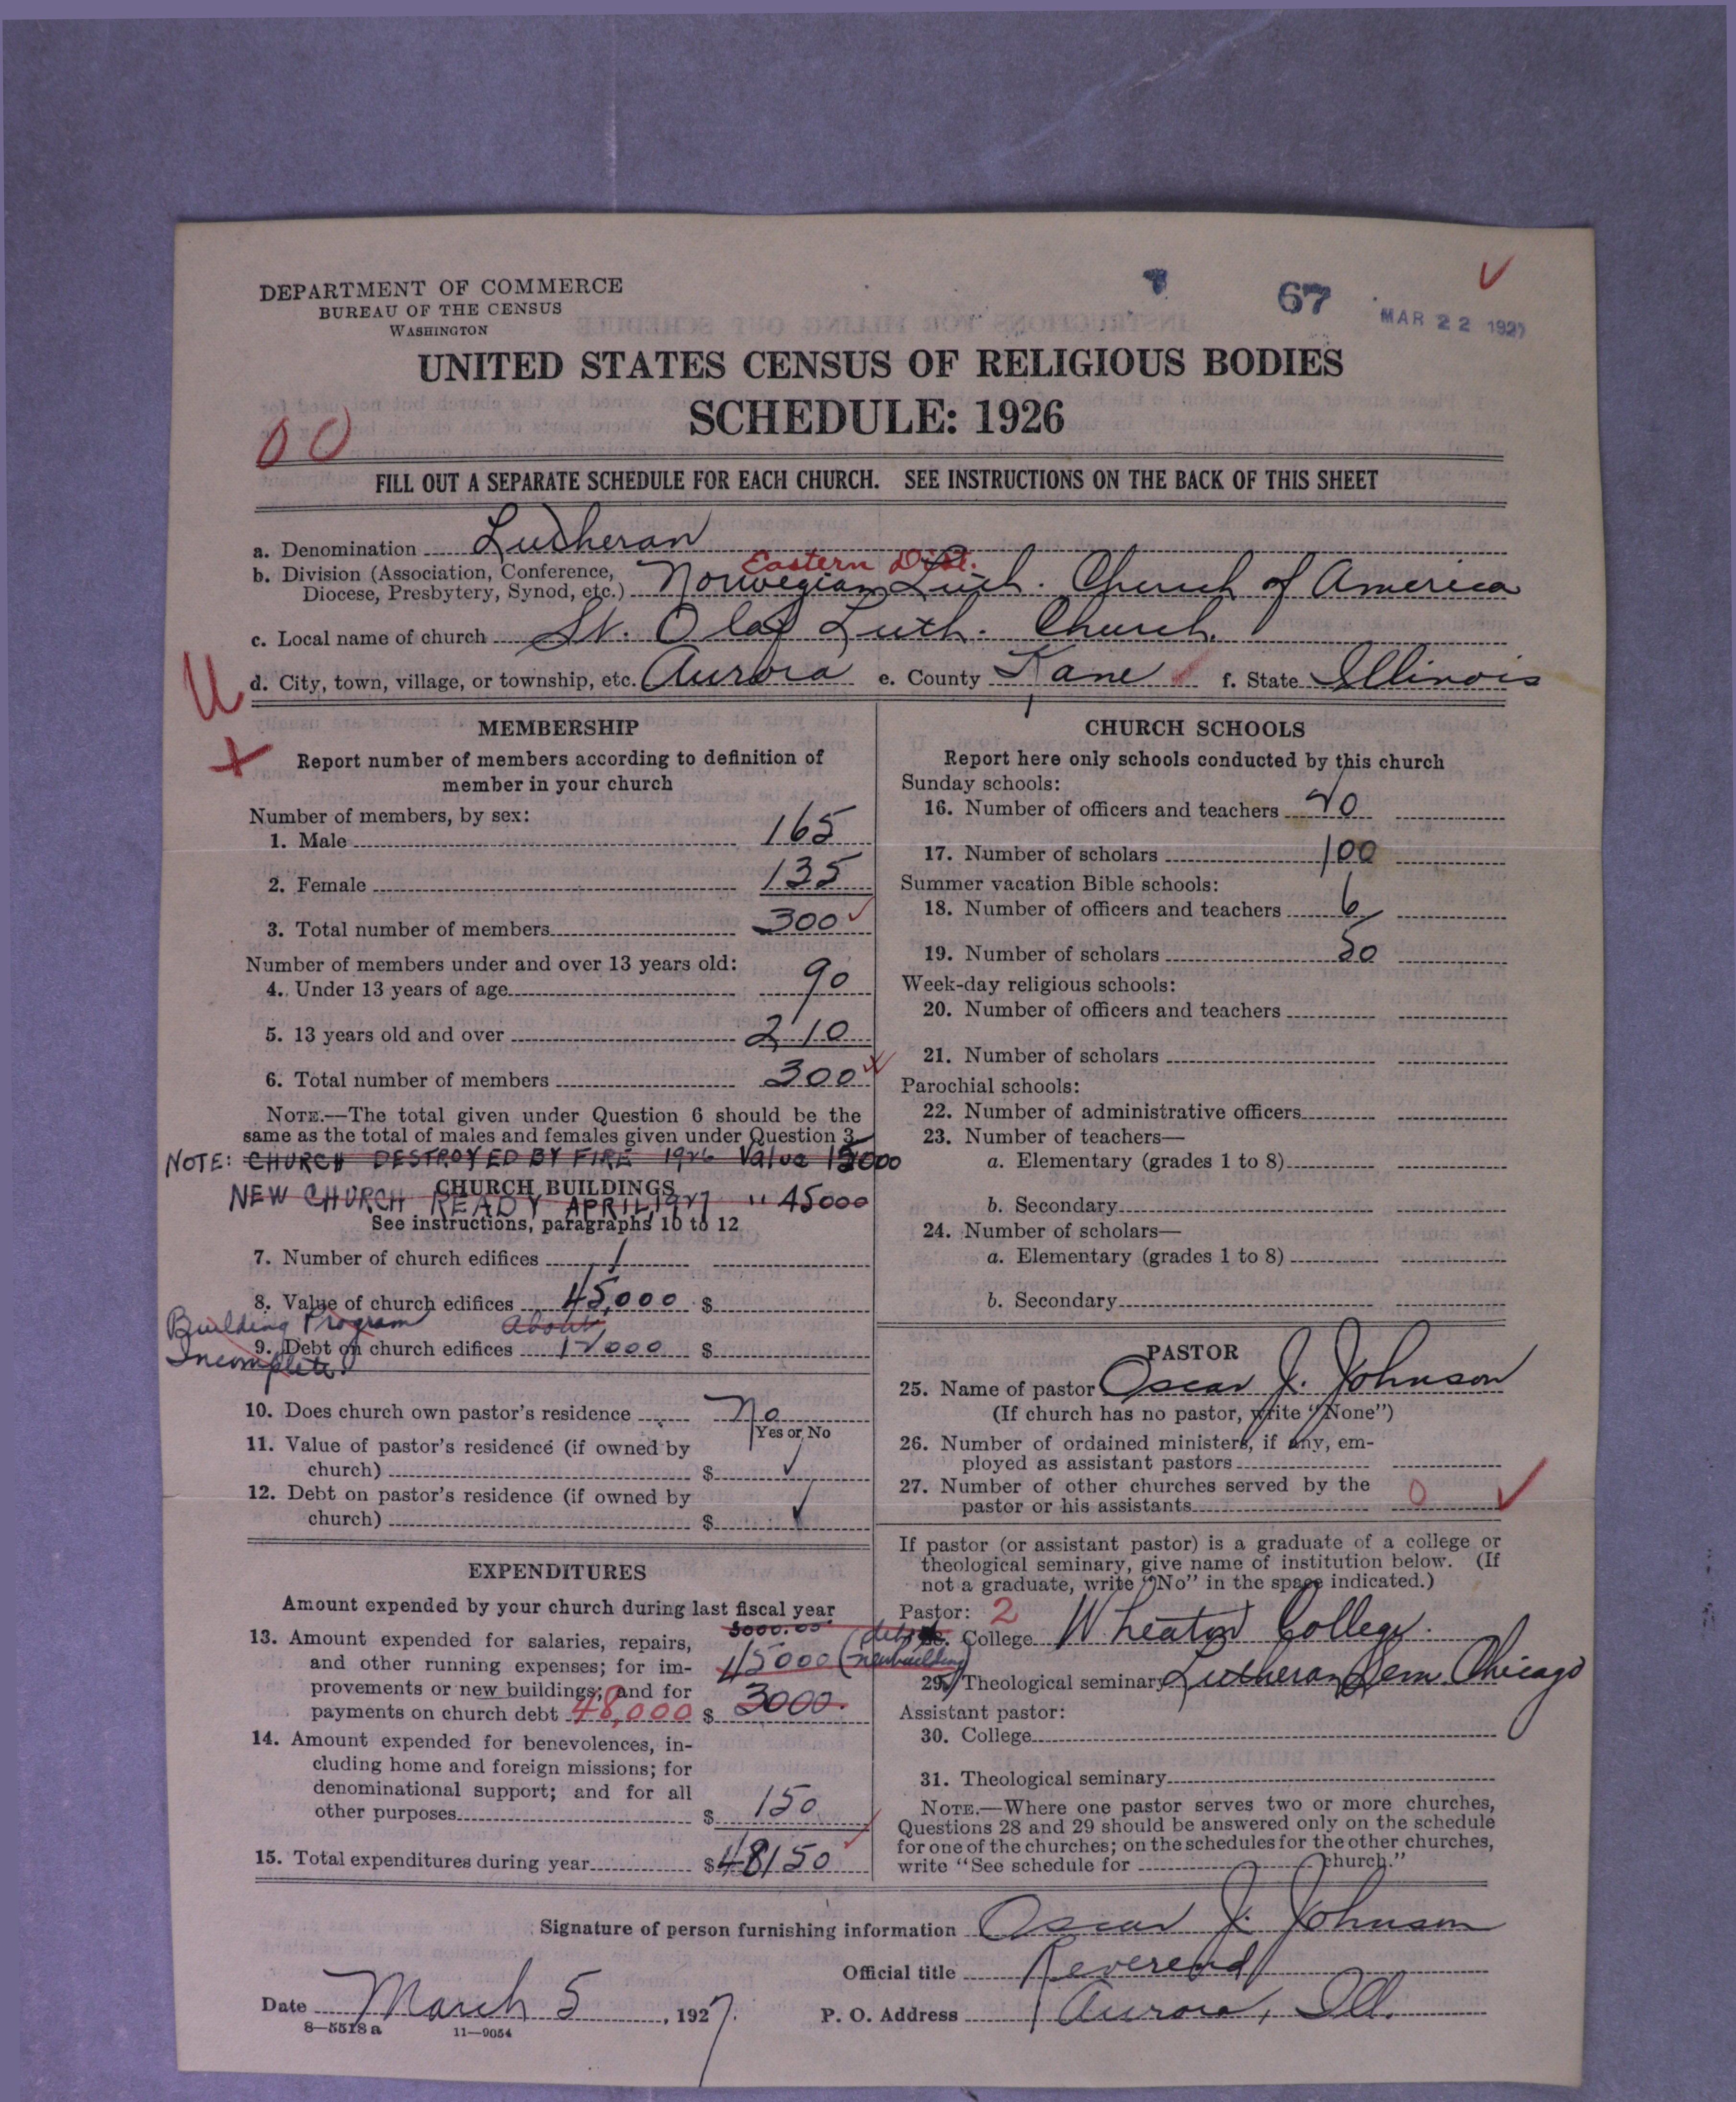 DEPARTMENT OF COMMERCE
BUREAU OF THE CENSUS
WASHINGTON
67
MAR 22 1927
UNITED STATES CENSUS OF RELIGIOUS BODIES
SCHEDULE: 1926
00
FILL OUT A SEPARATE SCHEDULE FOR EACH CHURCH. SEE INSTRUCTIONS ON THE BACK OF THIS SHEET
a. Denomination Lutheran
Eastern Dist.
b. Division (Association, Conference, Diocese, Presbytery, Synod, etc.) Norwegian Luth. Church of America
c. Local name of church St. Olaf Luth. Church.
U
d. City, town, village, or township, etc. Aurora e. County Kane f. State Illinois
MEMBERSHIP
Report number of members according to definition of
member in your church
Number of members, by sex:
1. Male 165
2. Female 135
3. Total number of members 300
Number of members under and over 13 years old:
4. Under 13 years of age 90
5. 13 years old and over 210
6. Total number of members 300
NOTE.—The total given under Question 6 should be the
same as the total of males and females given under Question 3
NOTE: CHURCH DESTROYED BY FIRE 1926 Value 15000
CHURCH BUILDINGS
NEW CHURCH READY APRIL 1927 " 45000
See instructions, paragraphs 10 to 12
7. Number of church edifices 1
8. Value of church edifices 45,000 $
Building Program
Incomplete.
about
9. Debt on church edifices 12000 $
10. Does church own pastor's residence No
Yes or No
11. Value of pastor's residence (if owned by
church) $
12. Debt on pastor's residence (if owned by
church) $
EXPENDITURES
Amount expended by your church during last fiscal year
3000.00
13. Amount expended for salaries, repairs,
and other running expenses; for im- 45000 (debt new building)
provements or new buildings; and for
payments on church debt 48,000 $ 3000.
14. Amount expended for benevolences, in-
cluding home and foreign missions; for
denominational support; and for all
other purposes $ 150
15. Total expenditures during year $48150
CHURCH SCHOOLS
Report here only schools conducted by this church
Sunday schools:
16. Number of officers and teachers 20
17. Number of scholars 100
Summer vacation Bible schools:
18. Number of officers and teachers 6
19. Number of scholars 50
Week-day religious schools:
20. Number of officers and teachers
21. Number of scholars
Parochial schools:
22. Number of administrative officers
23. Number of teachers—
a. Elementary (grades 1 to 8)
b. Secondary
24. Number of scholars—
a. Elementary (grades 1 to 8)
b. Secondary
PASTOR
25. Name of pastor Oscar J. Johnson
(If church has no pastor, write "None")
26. Number of ordained ministers, if any, em-
ployed as assistant pastors
27. Number of other churches served by the
pastor or his assistants 0
If pastor (or assistant pastor) is a graduate of a college or
theological seminary, give name of institution below. (If
not a graduate, write "No" in the space indicated.)
Pastor: 2
College Wheaton College.
29. Theological seminary Lutheran Sem. Chicago
Assistant pastor:
30. College
31. Theological seminary
NOTE.—Where one pastor serves two or more churches,
Questions 28 and 29 should be answered only on the schedule
for one of the churches; on the schedules for the other churches,
write "See schedule for church."
Signature of person furnishing information Oscar J. Johnson
Official title Reverend
Date March 5, 1927. P. O. Address Aurora, Ill.
8—5518 a 11—9054